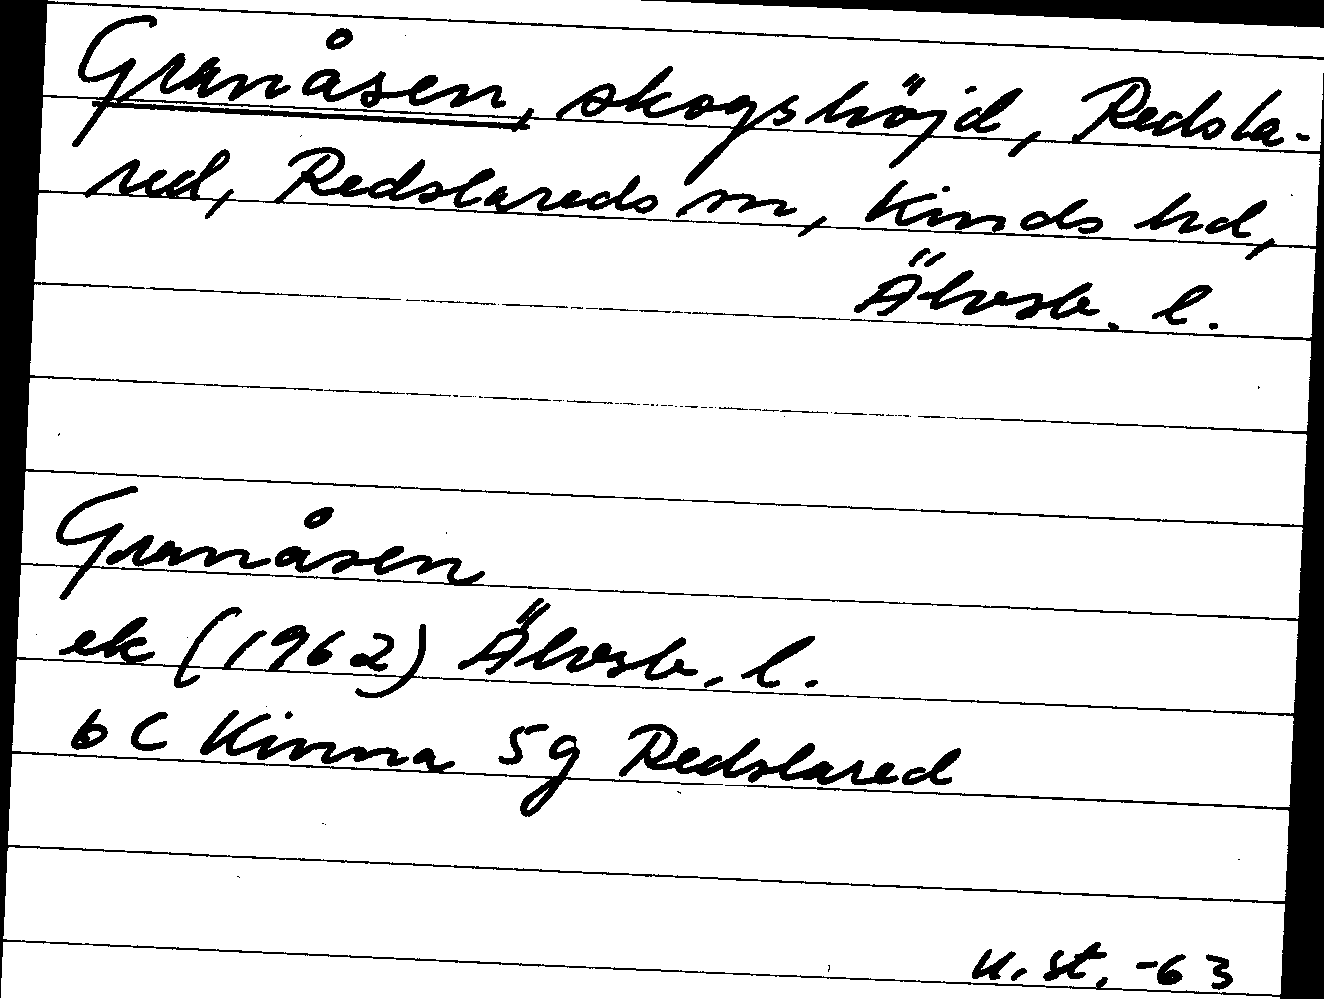 Granåsen, skogshöjd, Redsla-
red, Redslareds sn, Kinds hd,
Älvsb. l.
Granåsen
ek (1962) Älvsb. l.
6 C Kinna 5g Redslared
u. st. -63